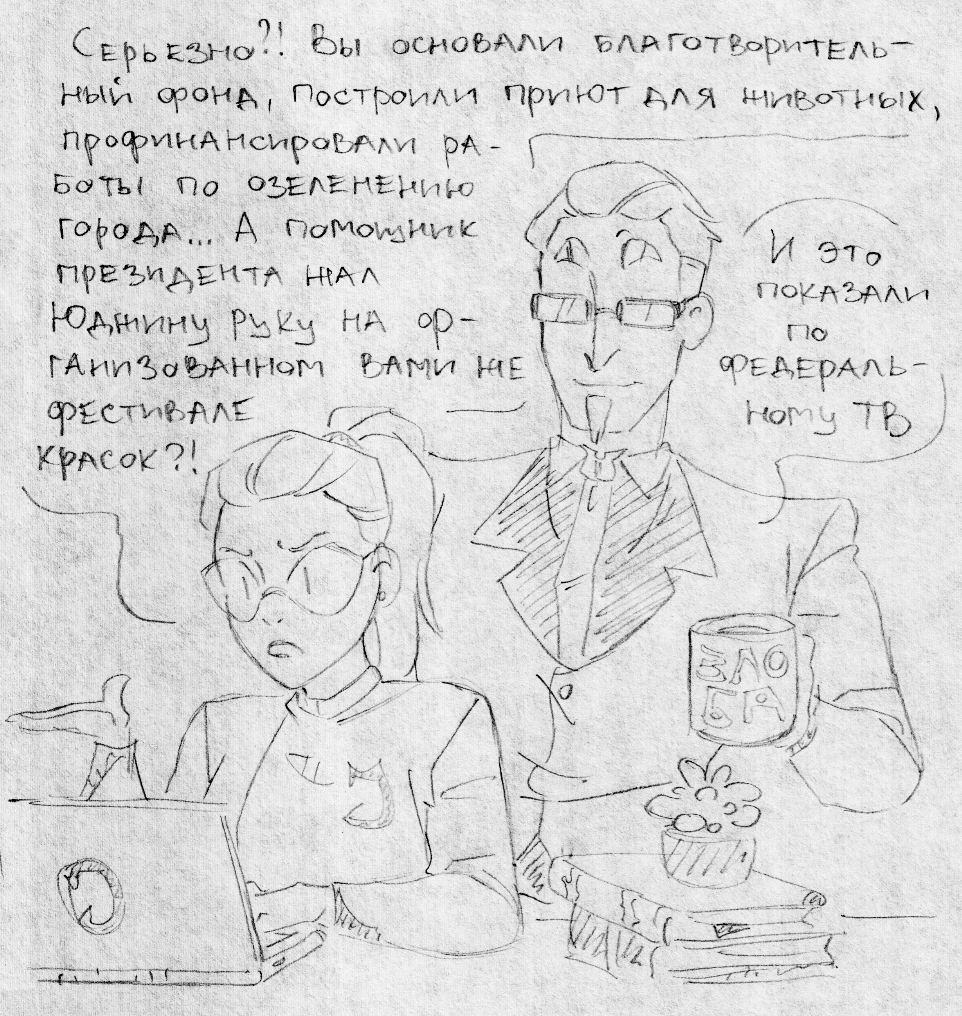 Серьезно?! Вы основали благотворитель-
ный фонд, построили приют для животных,
профинансировали ра-
боты по озеленению
города... А помощник
президента жал
Юджину руку на ор-
ганизованном вами же
фестивале
красок?!
И это
показали
по
федераль-
ному ТВ
ЗЛО
БА